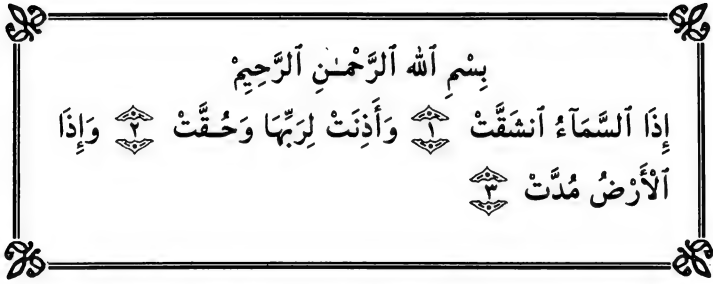 بِسْمِ ٱللهِ ٱلرَّحْمَـٰنِ ٱلرَّحِيمْ
إِذَا ٱلسَّمَآءُ ٱنشَقَّتْ ١ وَأَذِنَتْ لِرَبِّهَا وَحُـقَّتْ ٢ وَإِذَا
ٱلْأَرْضُ مُدَّتْ ٣